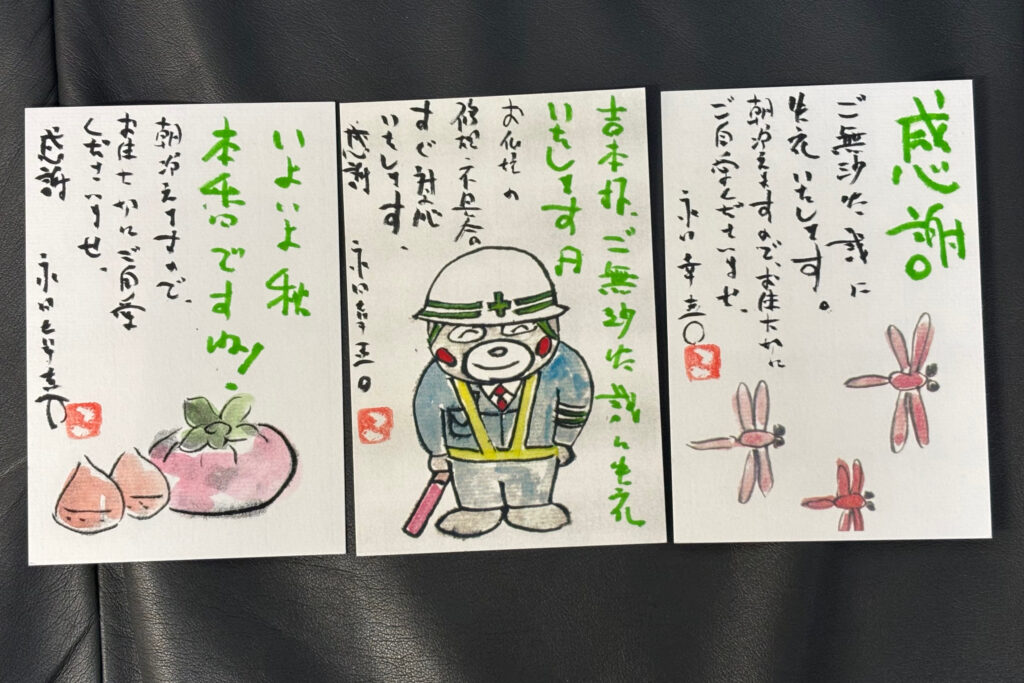 いよいよ秋
本番ですね!
朝冷えますので、
お体大切にご自愛
くださいませ。
感謝
吉本様、ご無沙汰誠に失礼
いたします
お仏壇の
修理、不具合
すぐ対応
いたします。
感謝
感謝。
ご無沙汰誠に
失礼いたします。
朝冷えますので、お体大切に
ご自愛くださいませ